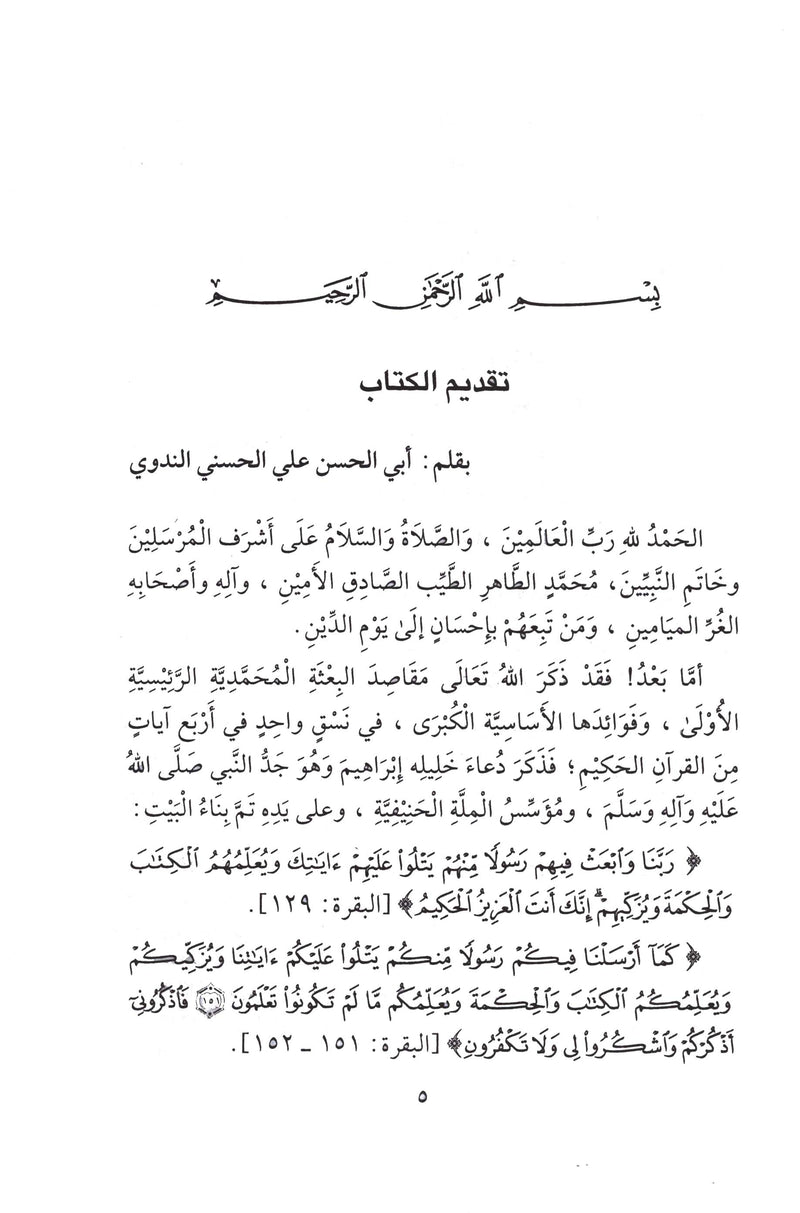 بِسْمِ ٱللَّهِ ٱلرَّحْمَٰنِ ٱلرَّحِيمِ
تقديم الكتاب
بقلم: أبي الحسن علي الحسني الندوي
الحَمْدُ للهِ رَبِّ الْعَالَمِيْنَ ، وَالصَّلَاةُ وَالسَّلَامُ عَلَى أَشْرَفِ الْمُرْسَلِيْنَ
وخَاتَمِ النَّبِيِّينَ، مُحَمَّدٍ الطَّاهرِ الطَّيِّبِ الصَّادِقِ الأَمِيْنِ ، وَآلِهِ وأَصْحَابِهِ
الغُرِّ الميَامِينِ ، وَمَنْ تَبِعَهُمْ بإِحْسَانٍ إلَىٰ يَوْمِ الدِّيْنِ.
أمَّا بَعْدُ! فَقَدْ ذَكَرَ اللهُ تَعَالَى مَقَاصِدَ البِعْثَةِ الْمُحَمَّدِيَّةِ الرَّئِيْسِيَّةِ
الأُوْلَىٰ ، وَفَوَائِدَها الأَسَاسِيَّة الْكُبْرَى ، في نَسْقٍ واحِدٍ في أَرْبَع آيَاتٍ
مِنَ القرآنِ الحَكِيْمِ؛ فَذَكَرَ دُعاءَ خَلِيلِه إبْرَاهِيمَ وَهُوَ جَدُّ النَّبي صَلَّى اللهُ
عَلَيْهِ وَآلِهِ وَسَلَّمَ ، ومُؤَسِّسُ الْمِلَّةِ الْحَنِيْفِيَّةِ ، وعلى يَدِهِ تَمَّ بِنَاءُ الْبَيْتِ:
﴿ رَبَّنَا وَٱبْعَثْ فِيهِمْ رَسُولًا مِّنْهُمْ يَتْلُوا۟ عَلَيْهِمْ ءَايَٰتِكَ وَيُعَلِّمُهُمُ ٱلْكِتَٰبَ
وَٱلْحِكْمَةَ وَيُزَكِّيهِمْ ۚ إِنَّكَ أَنتَ ٱلْعَزِيزُ ٱلْحَكِيمُ ﴾ [البقرة: ١٢٩].
﴿ كَمَآ أَرْسَلْنَا فِيكُمْ رَسُولًا مِّنكُمْ يَتْلُوا۟ عَلَيْكُمْ ءَايَٰتِنَا وَيُزَكِّيكُمْ
وَيُعَلِّمُكُمُ ٱلْكِتَٰبَ وَٱلْحِكْمَةَ وَيُعَلِّمُكُم مَّا لَمْ تَكُونُوا۟ تَعْلَمُونَ ۝١٥١ فَٱذْكُرُونِىٓ
أَذْكُرْكُمْ وَٱشْكُرُوا۟ لِى وَلَا تَكْفُرُونِ ﴾ [البقرة: ١٥١ ـ ١٥٢].
٥